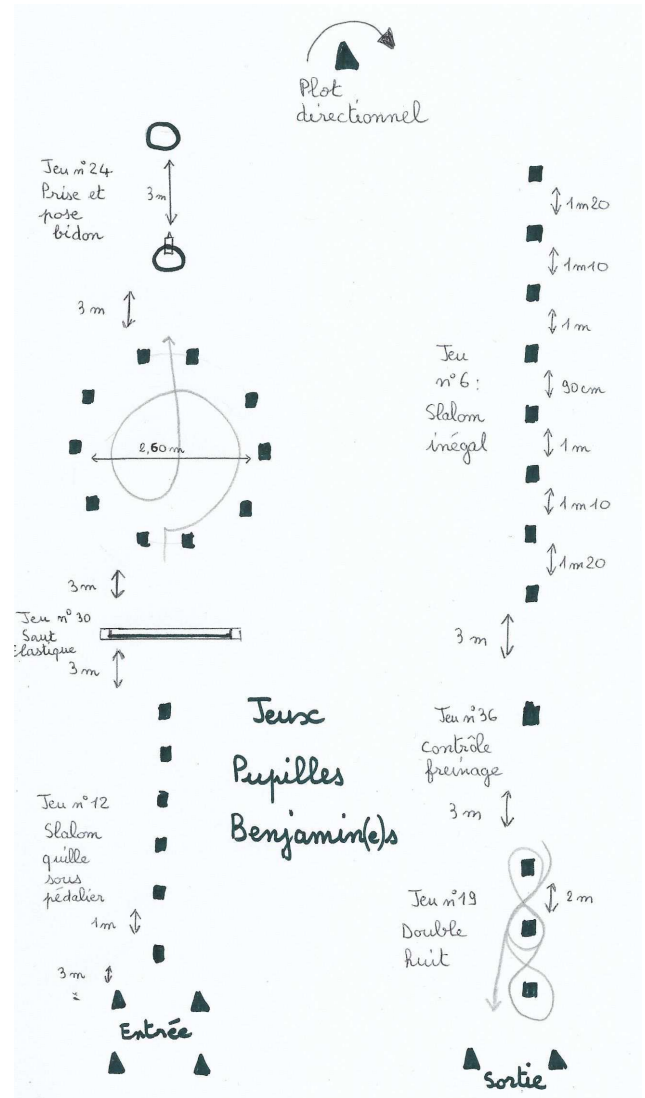 Plot
directionnel
Jeu n°24
Prise et
pose
bidon
3m
3m
2,60m
3m
Jeu n°30
Saut
élastique
3m
Jeu n°12
Slalom
quille
sous
pédalier
1m
3m
Entrée
Jeux
Pupilles
Benjamin(e)s
1m20
1m10
1m
Jeu
n°6:
Slalom
inégal
90cm
1m
1m10
1m20
3m
Jeu n°36
contrôle
freinage
3m
Jeu n°19
Double
huit
2m
Sortie